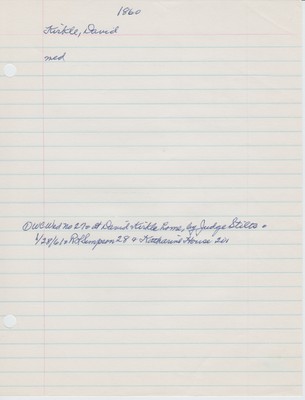 1860
Kirkle, David
med
① WB Wed No 270 at David Kirkle home, by Judge Stiles o
1/28/61 o R. Simpson 28 & Katharine House 20